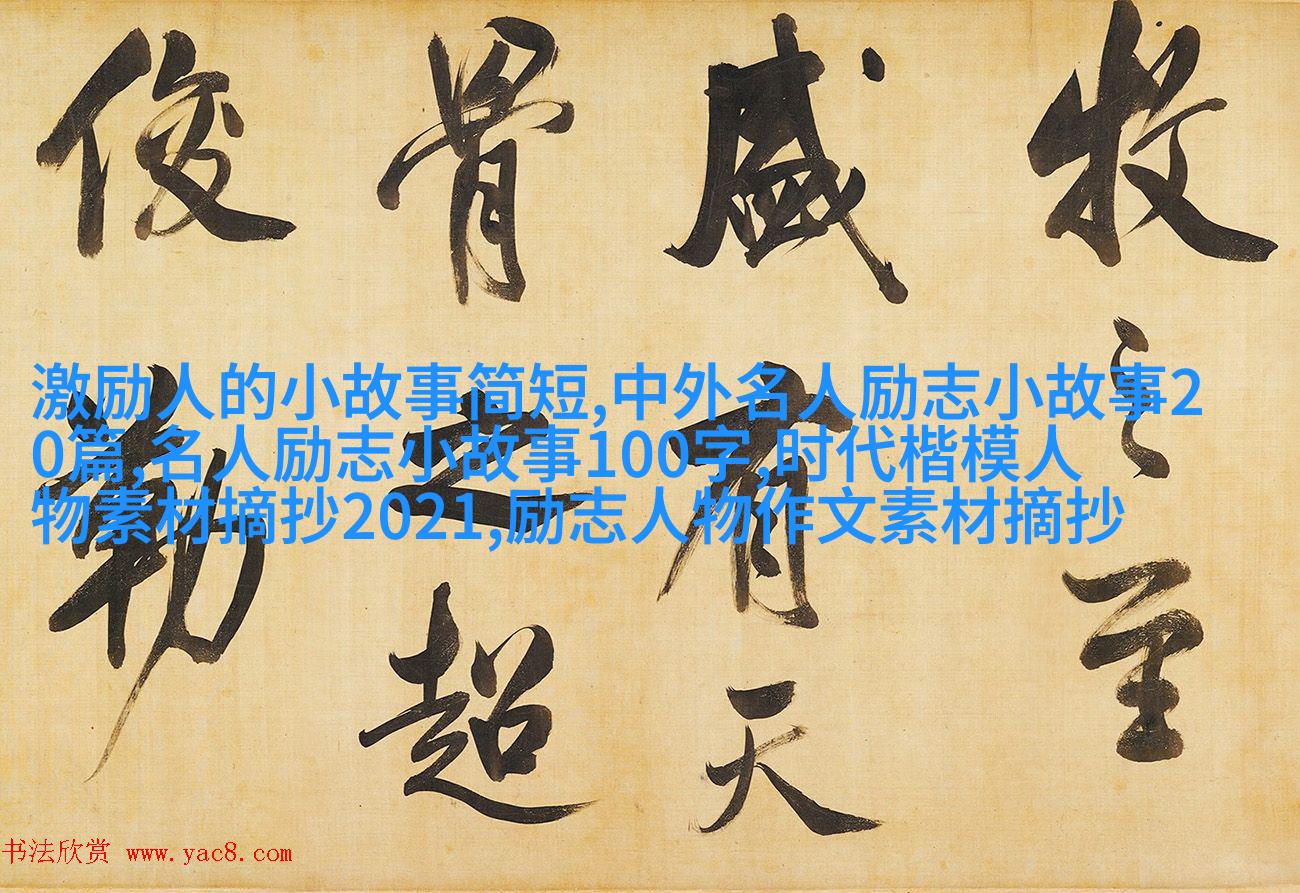 牧之至
盛有天
骨之超
俊勒
激励人的小故事简短,中外名人励志小故事2
0篇,名人励志小故事100字,时代楷模人
物素材摘抄2021,励志人物作文素材摘抄
书法欣赏 www.yac8.com